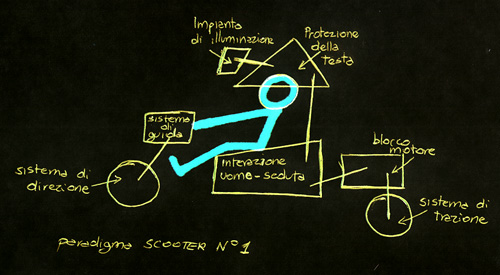 Impianto
di illuminazione
Protezione
della
testa
sistema
di
guida
blocco
motore
Interazione
uomo-seduta
sistema di
direzione
sistema di
trazione
paradigma SCOOTER N°1